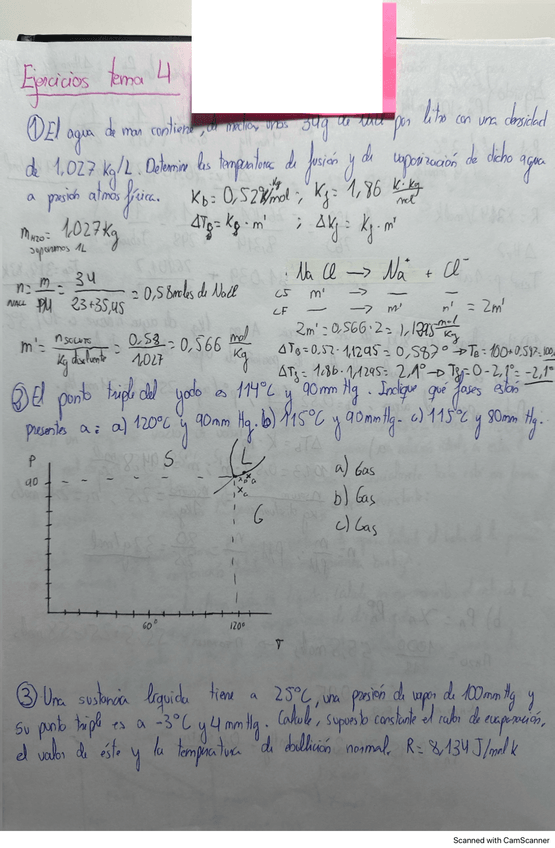 Ejercicios tema 4
① El agua de mar contiene, de media, unos 34g de NaCl por litro con una densidad
de 1,027 Kg/L. Determine las temperaturas de fusión y de vaporización de dicho agua
a presión atmosférica.
Kb = 0,52 K·Kg/mol ; Kf = 1,86 K·Kg/mol
mH2O = 1,027 Kg
suponemos 1L
ΔTB = KB · m' ; ΔKf = Kf · m'
NaCl → Na⁺ + Cl⁻
n NaCl = m/PM = 34/23+35,45 = 0,58 moles de NaCl
CI m' — —
CF — m' m' = 2m'
2m' = 0,566 · 2 = 1,1295 mol/Kg
m' = n soluto/Kg disolvente = 0,58/1,027 = 0,566 mol/Kg
ΔTB = 0,52 · 1,1295 = 0,587° → TB = 100 + 0,587 = 100,
ΔTf = 1,86 · 1,1295 = 2,1° → Tf = 0 - 2,1° = -2,1°
② El punto triple del yodo es 114°C y 90mm Hg. Indique que fases están
presentes a: a) 120°C y 90mm Hg. b) 115°C y 90mm Hg. c) 115°C y 80mm Hg.
P
90
S
L
G
60°
120°
T
a) Gas
b) Gas
c) Gas
③ Una sustancia líquida tiene a 25°C, una presión de vapor de 100mm Hg y
su punto triple es a -3°C y 4mm Hg. Calcule, supuesto constante el calor de evaporación,
el valor de éste y la temperatura de ebullición normal. R = 8,134 J/mol K
Scanned with CamScanner